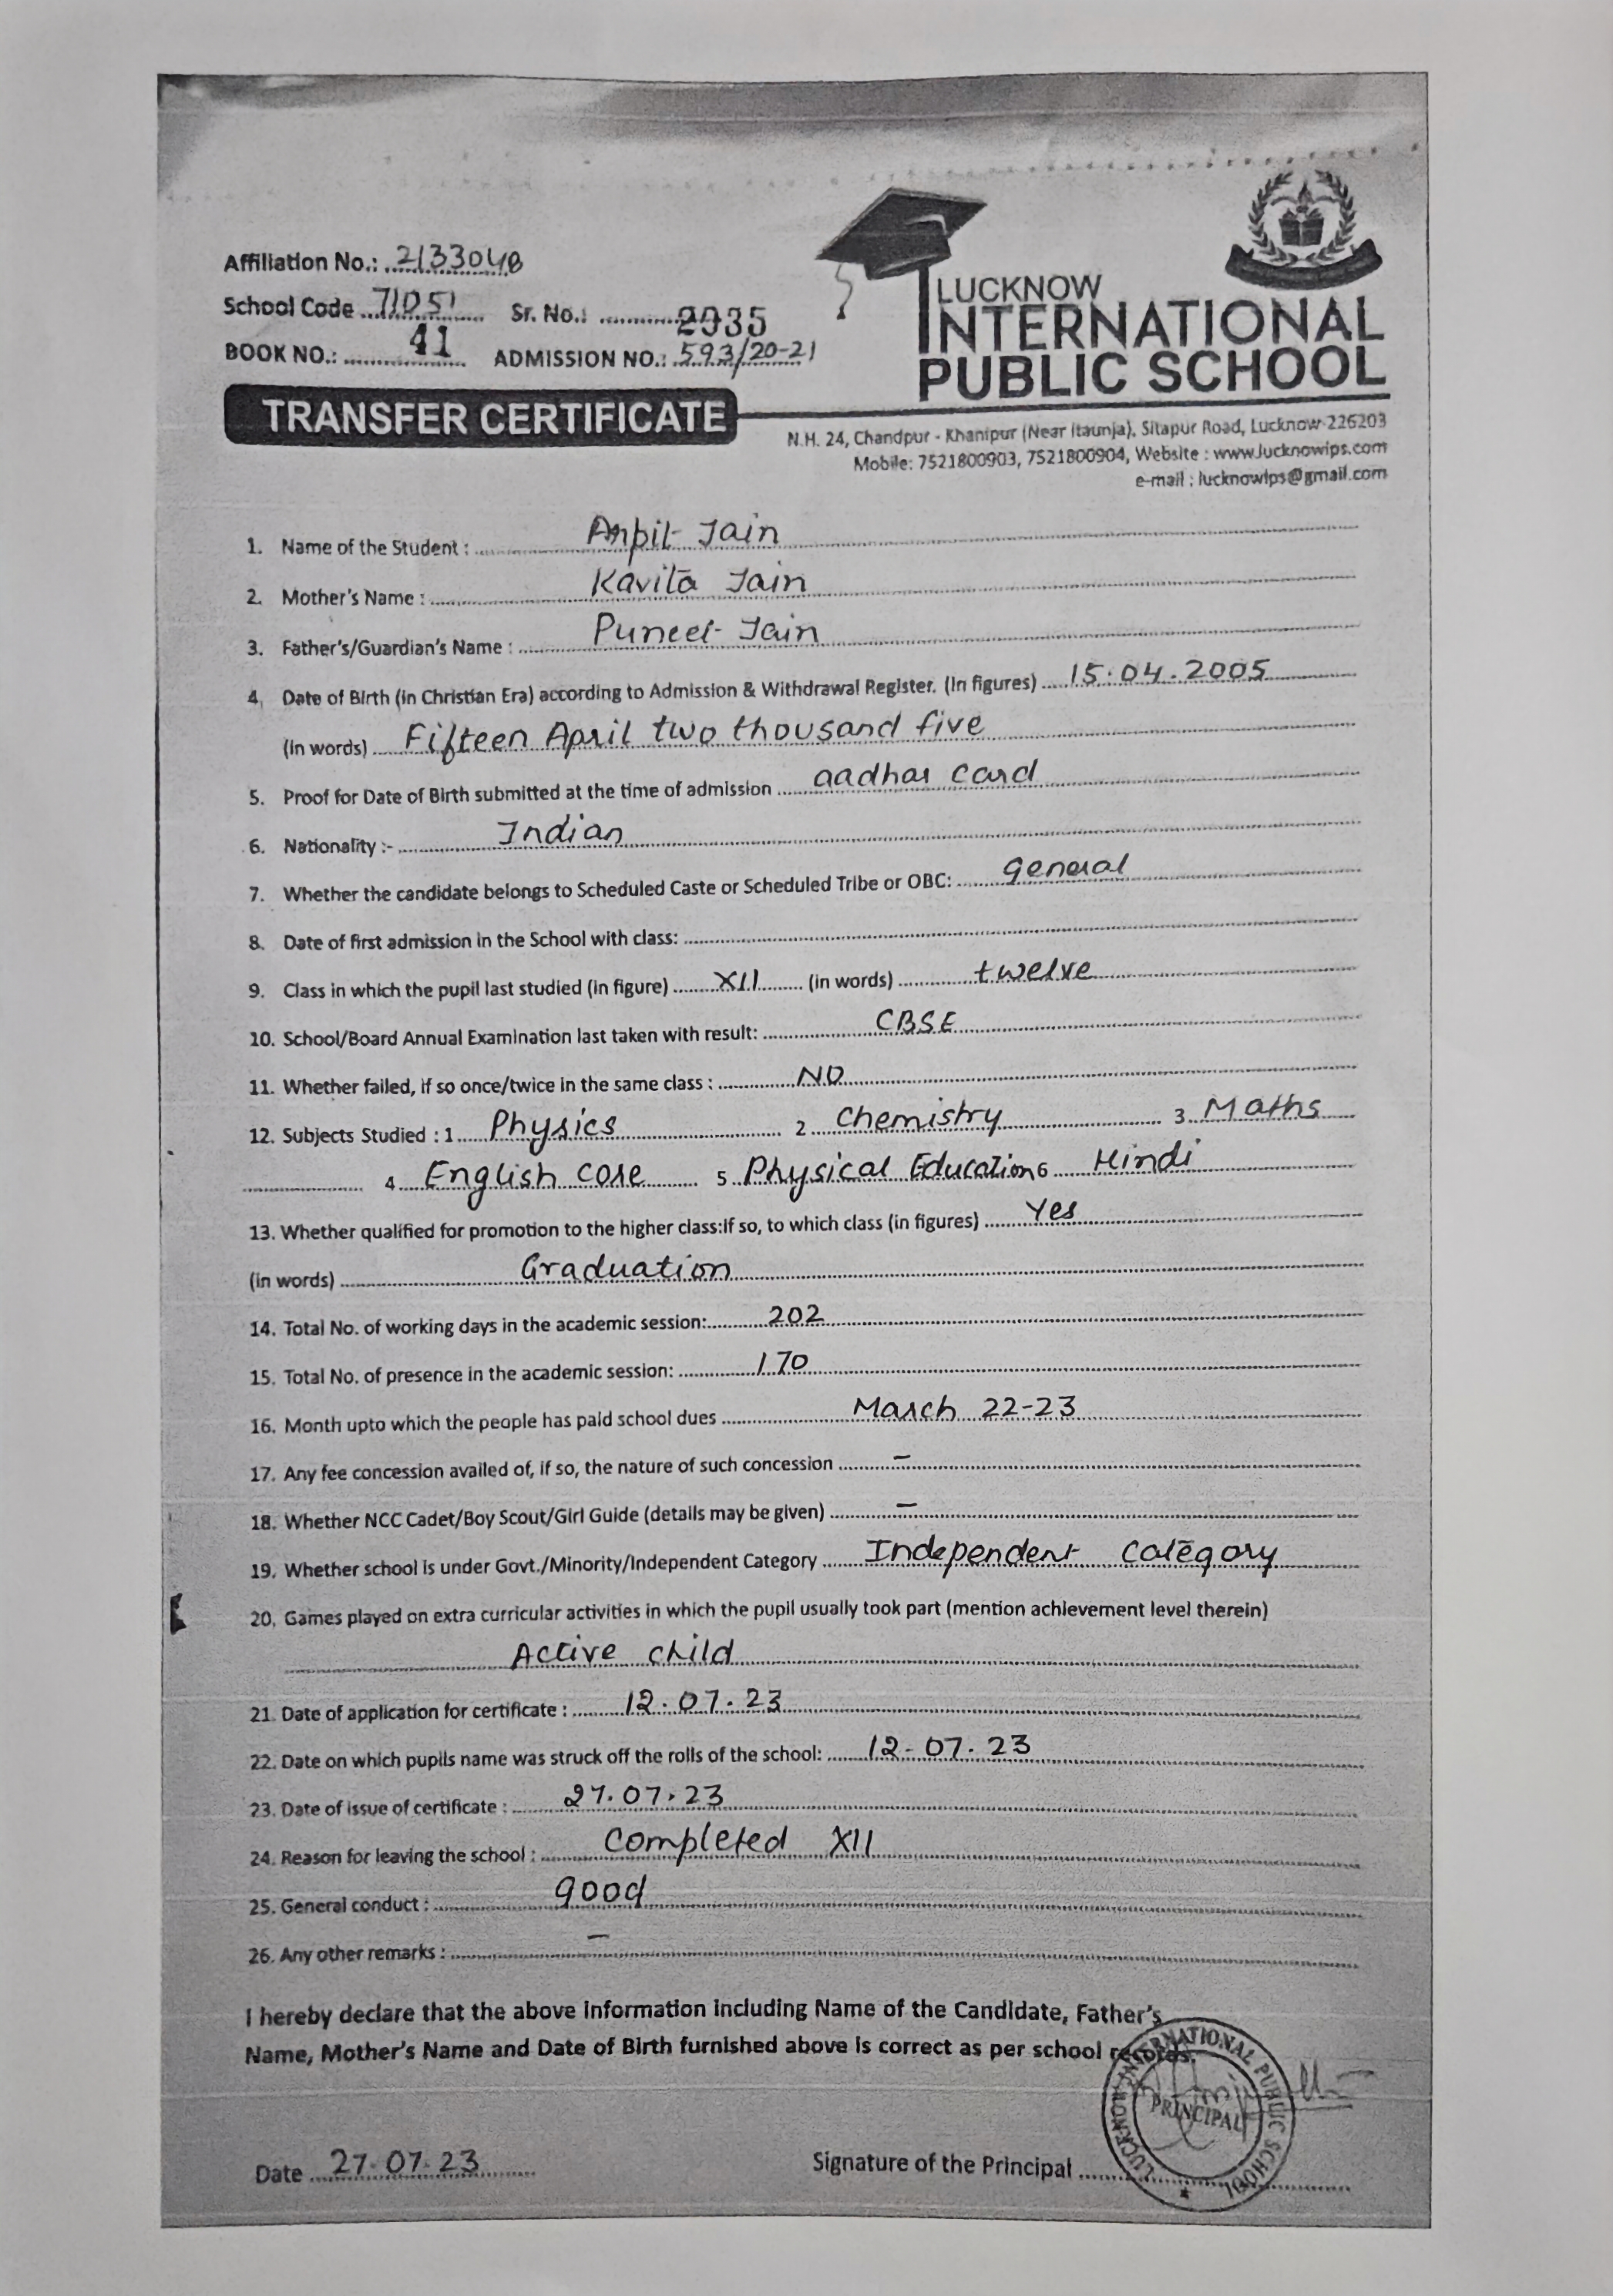 Affiliation No.: 2133048
School Code 71051 Sr. No.: 2035
BOOK NO.: 41 ADMISSION NO.: 593/20-21
LUCKNOW
INTERNATIONAL
PUBLIC SCHOOL
TRANSFER CERTIFICATE
N.H. 24, Chandpur - Khanipur (Near Itaunja), Sitapur Road, Lucknow-226203
Mobile: 7521800903, 7521800904, Website : www.lucknowips.com
e-mail : lucknowips@gmail.com
1. Name of the Student : Jain
2. Mother's Name : Kavita Jain
3. Father's/Guardian's Name : Puneet Jain
4. Date of Birth (in Christian Era) according to Admission & Withdrawal Register. (In figures) 15.04.2005
(in words) Fifteen April two thousand five
5. Proof for Date of Birth submitted at the time of admission aadhar card
6. Nationality :- Indian
7. Whether the candidate belongs to Scheduled Caste or Scheduled Tribe or OBC: general
8. Date of first admission in the School with class:
9. Class in which the pupil last studied (in figure) XII (in words) twelve
10. School/Board Annual Examination last taken with result: CBSE
11. Whether failed, if so once/twice in the same class : NO
12. Subjects Studied : 1 Physics 2 Chemistry 3 Maths
4 English core 5 Physical Education 6 Hindi
13. Whether qualified for promotion to the higher class:If so, to which class (in figures) Yes
(in words) Graduation
14. Total No. of working days in the academic session: 202
15. Total No. of presence in the academic session: 170
16. Month upto which the people has paid school dues March 22-23
17. Any fee concession availed of, if so, the nature of such concession –
18. Whether NCC Cadet/Boy Scout/Girl Guide (details may be given) –
19. Whether school is under Govt./Minority/Independent Category Independent Category
20. Games played on extra curricular activities in which the pupil usually took part (mention achievement level therein)
Active child
21. Date of application for certificate : 12.07.23
22. Date on which pupils name was struck off the rolls of the school: 12-07-23
23. Date of issue of certificate : 27.07.23
24. Reason for leaving the school : Completed XII
25. General conduct : good
26. Any other remarks : –
I hereby declare that the above information including Name of the Candidate, Father's
Name, Mother's Name and Date of Birth furnished above is correct as per school records.
LUCKNOW INTERNATIONAL PUBLIC SCHOOL
PRINCIPAL
Date 27.07.23 Signature of the Principal